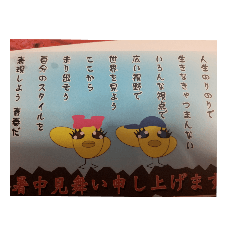 人生のりのりで
生きなきゃつまんない
いろんな視点で
広い視野で
世界を見よう
ここから
まり出そう
自分のスタイルを
表現しよう 青春だ
暑中見舞い申し上げます